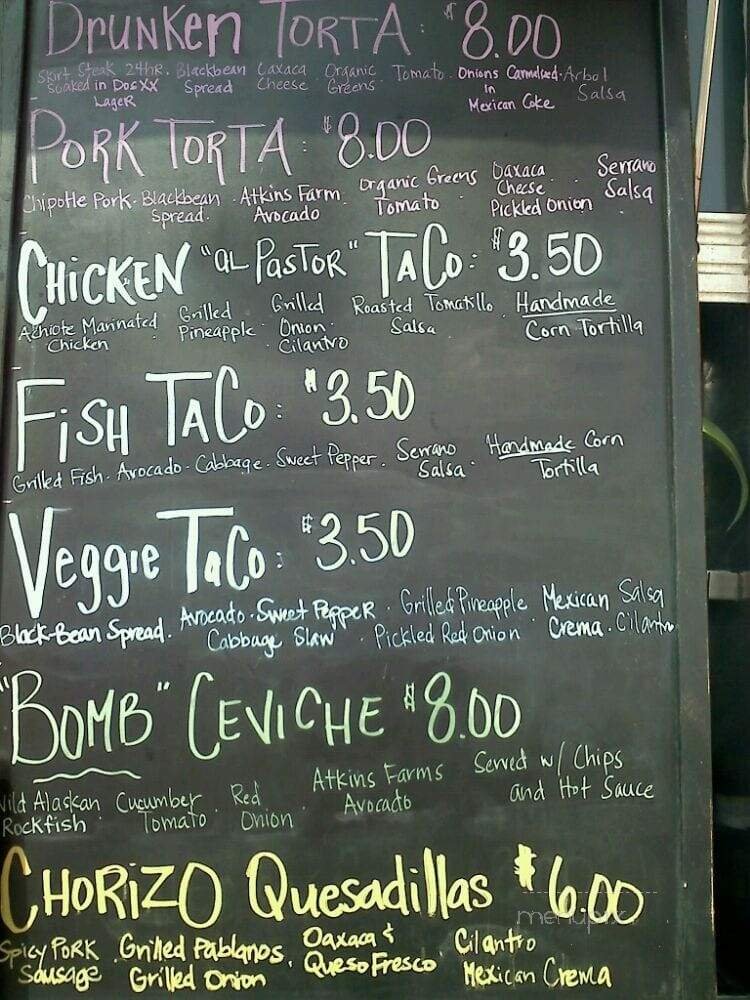 Drunken Torta: $8.00
Skirt Steak 24hr. Blackbean Oaxaca Organic Tomato. Onions Carmalized. Arbol
Soaked in DosXX Spread Cheese Greens in Salsa
Lager Mexican Coke
Pork Torta: $8.00
Chipotle Pork. Blackbean Atkins Farm. Organic Greens Oaxaca Serrano
Spread. Avocado Tomato Cheese Salsa
Pickled Onion
Chicken "al Pastor" Taco: $3.50
Achiote Marinated Grilled Grilled Roasted Tomatillo Handmade
Chicken Pineapple Onion Salsa Corn Tortilla
Cilantro
Fish Taco: $3.50
Grilled Fish. Avocado. Cabbage. Sweet Pepper. Serrano Handmade Corn
Salsa Tortilla
Veggie Taco: $3.50
Black-Bean Spread. Avocado. Sweet Pepper. Grilled Pineapple Mexican Salsa
Cabbage Slaw Pickled Red Onion Crema. Cilantro
"Bomb" Ceviche $8.00
Wild Alaskan Cucumber Red Atkins Farms Served w/ Chips
Rockfish Tomato Onion Avocado and Hot Sauce
Chorizo Quesadillas $6.00
Spicy Pork Grilled Pablanos Oaxaca & Cilantro
Sausage Grilled Onion Queso Fresco Mexican Crema
menupix